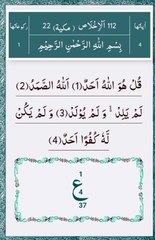 اٰیاتها 4
112 اَلْاِخْلَاص (مَكِّيَة) 22
رکوعاتها 1
بِسْمِ اللّٰهِ الرَّحْمٰنِ الرَّحِيْمِ
قُلْ هُوَ اللّٰهُ اَحَدٌ(1) اَللّٰهُ الصَّمَدُ(2)
لَمْ يَلِدْ ۙ وَ لَمْ يُوْلَدْ(3) وَ لَمْ يَكُنْ
لَّهٗ كُفُوًا اَحَدٌ(4)
1
ع
4
37